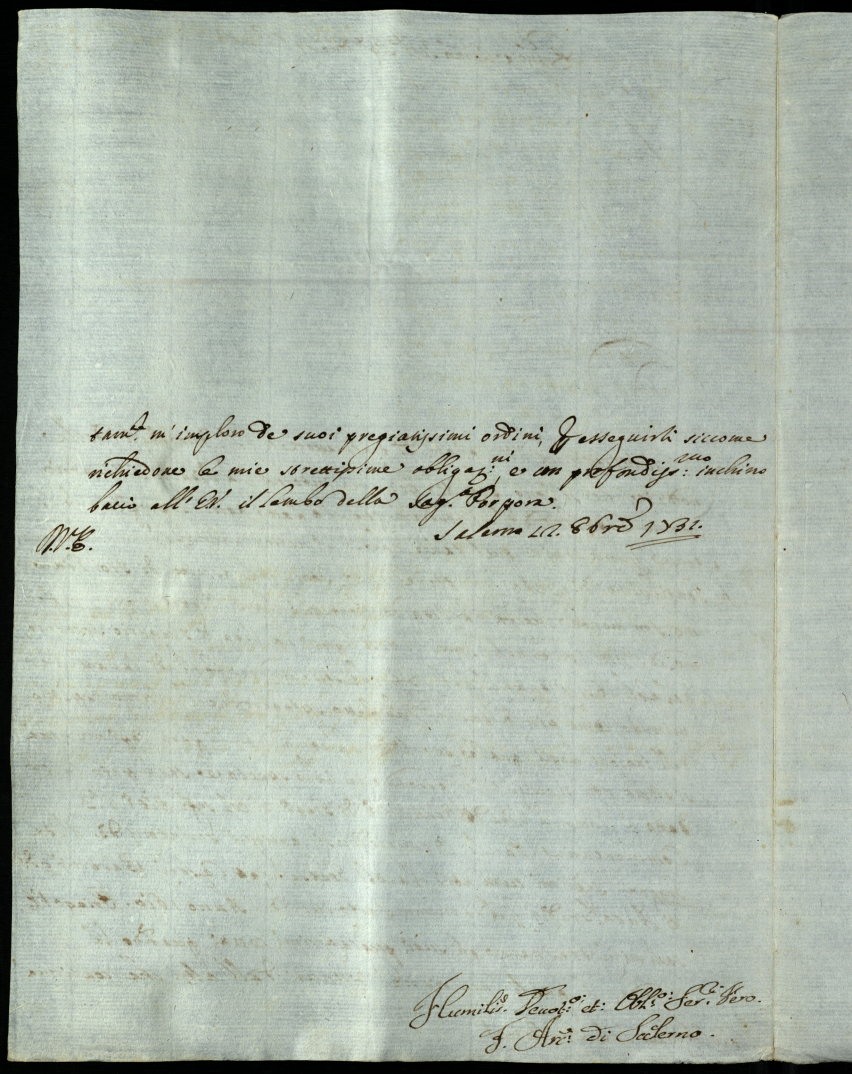 tam.te m'imploro de suoi pregiatissimi ordini, p esseguirli siccome
richiedone le mie strettissime obligaz:ni, e con profondiss:mo inchino
bacio all'Em. il Lembo della Sag.a Porpora.
Salerno 8bre 1731.
Humilis.o Devot:o et: Obls:o Ser:e Vero.
F. Arc: di Salerno.